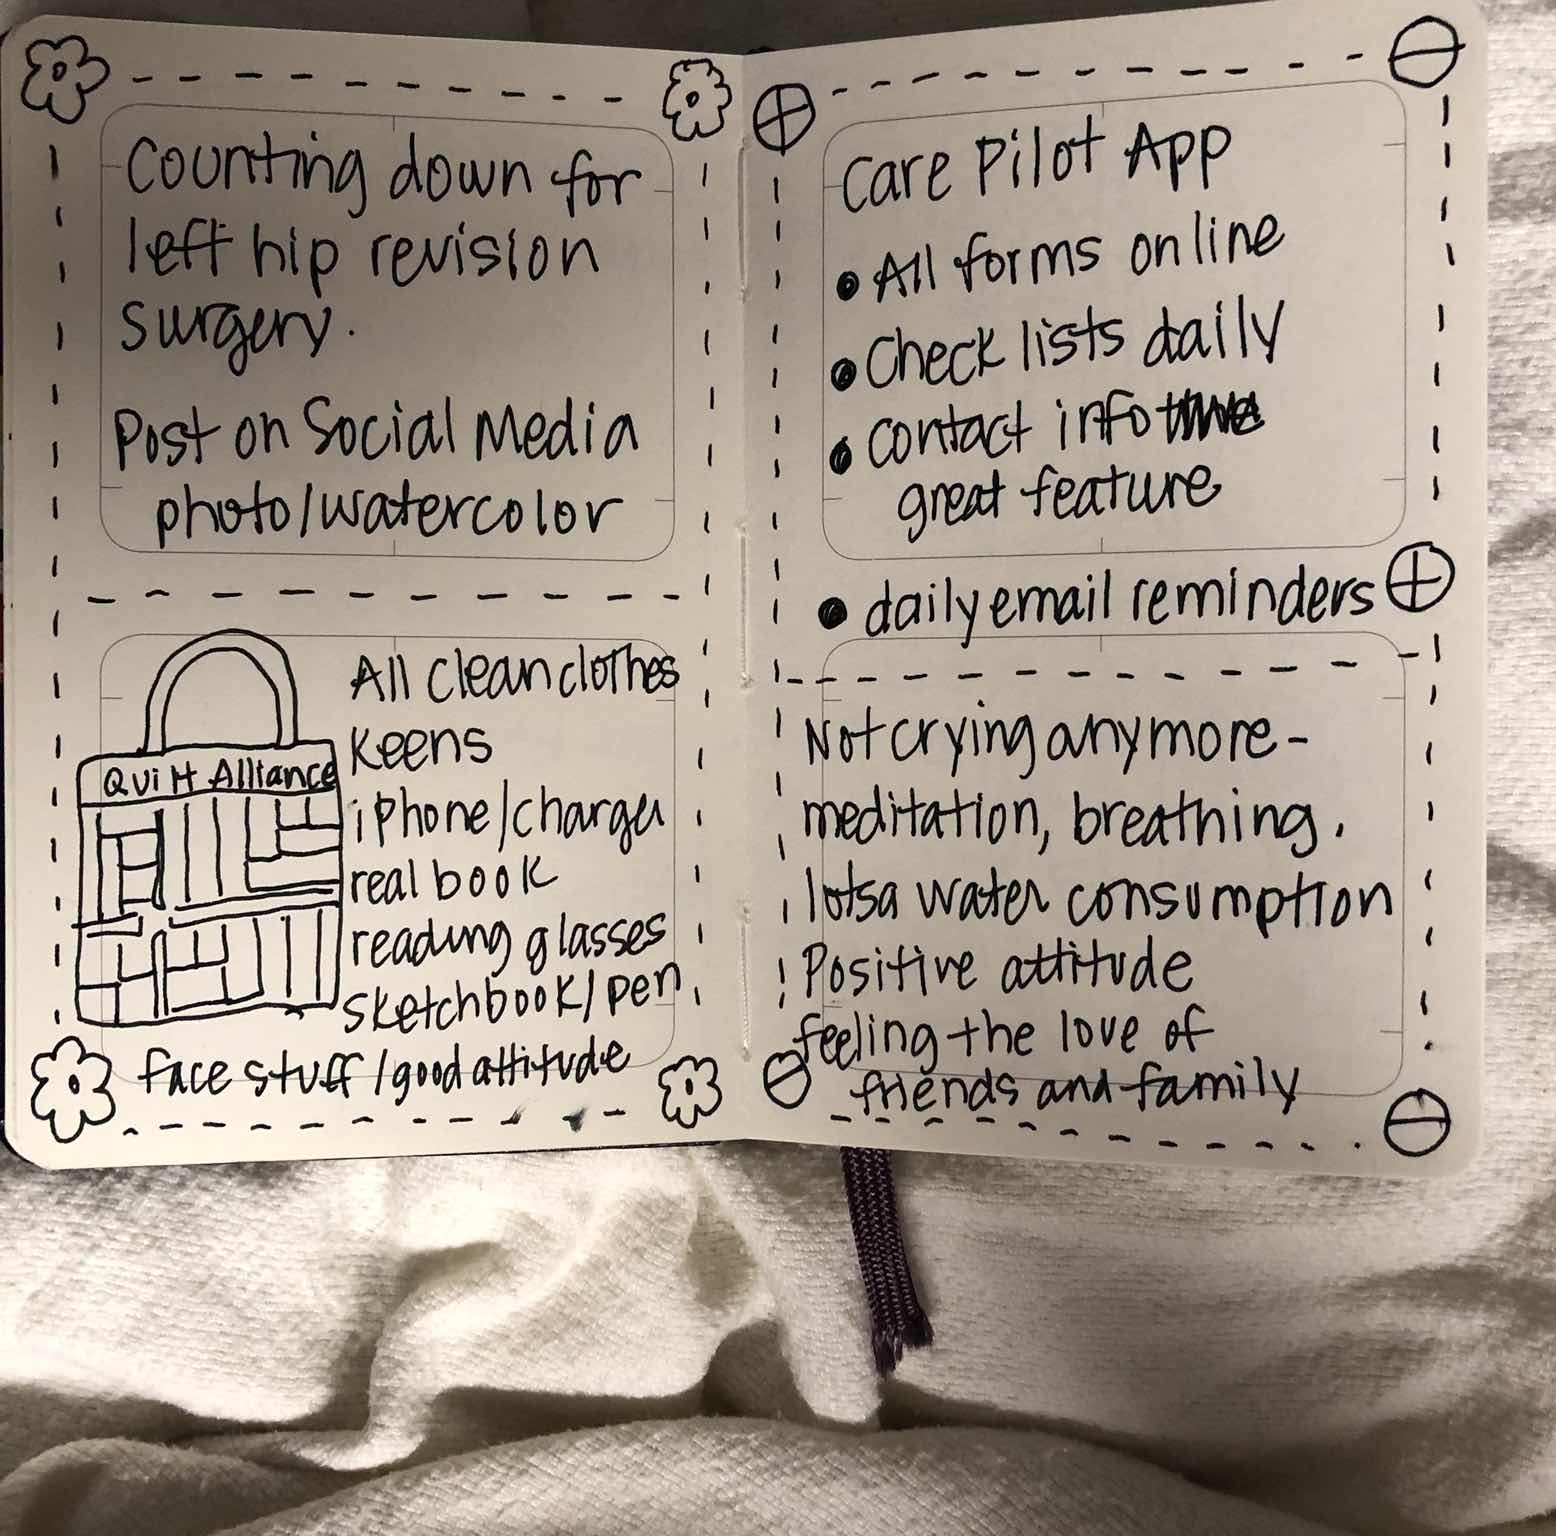 Counting down for
left hip revision
surgery.
Post on Social Media
photo/watercolor
Quilt Alliance
All clean clothes
Keens
iPhone/charger
real book
reading glasses
sketchbook/pen
face stuff/good attitude
Care Pilot App
• All forms online
• Check lists daily
• contact info
great feature
• daily email reminders
Not crying anymore-
meditation, breathing.
lotsa water consumption
Positive attitude
feeling the love of
friends and family